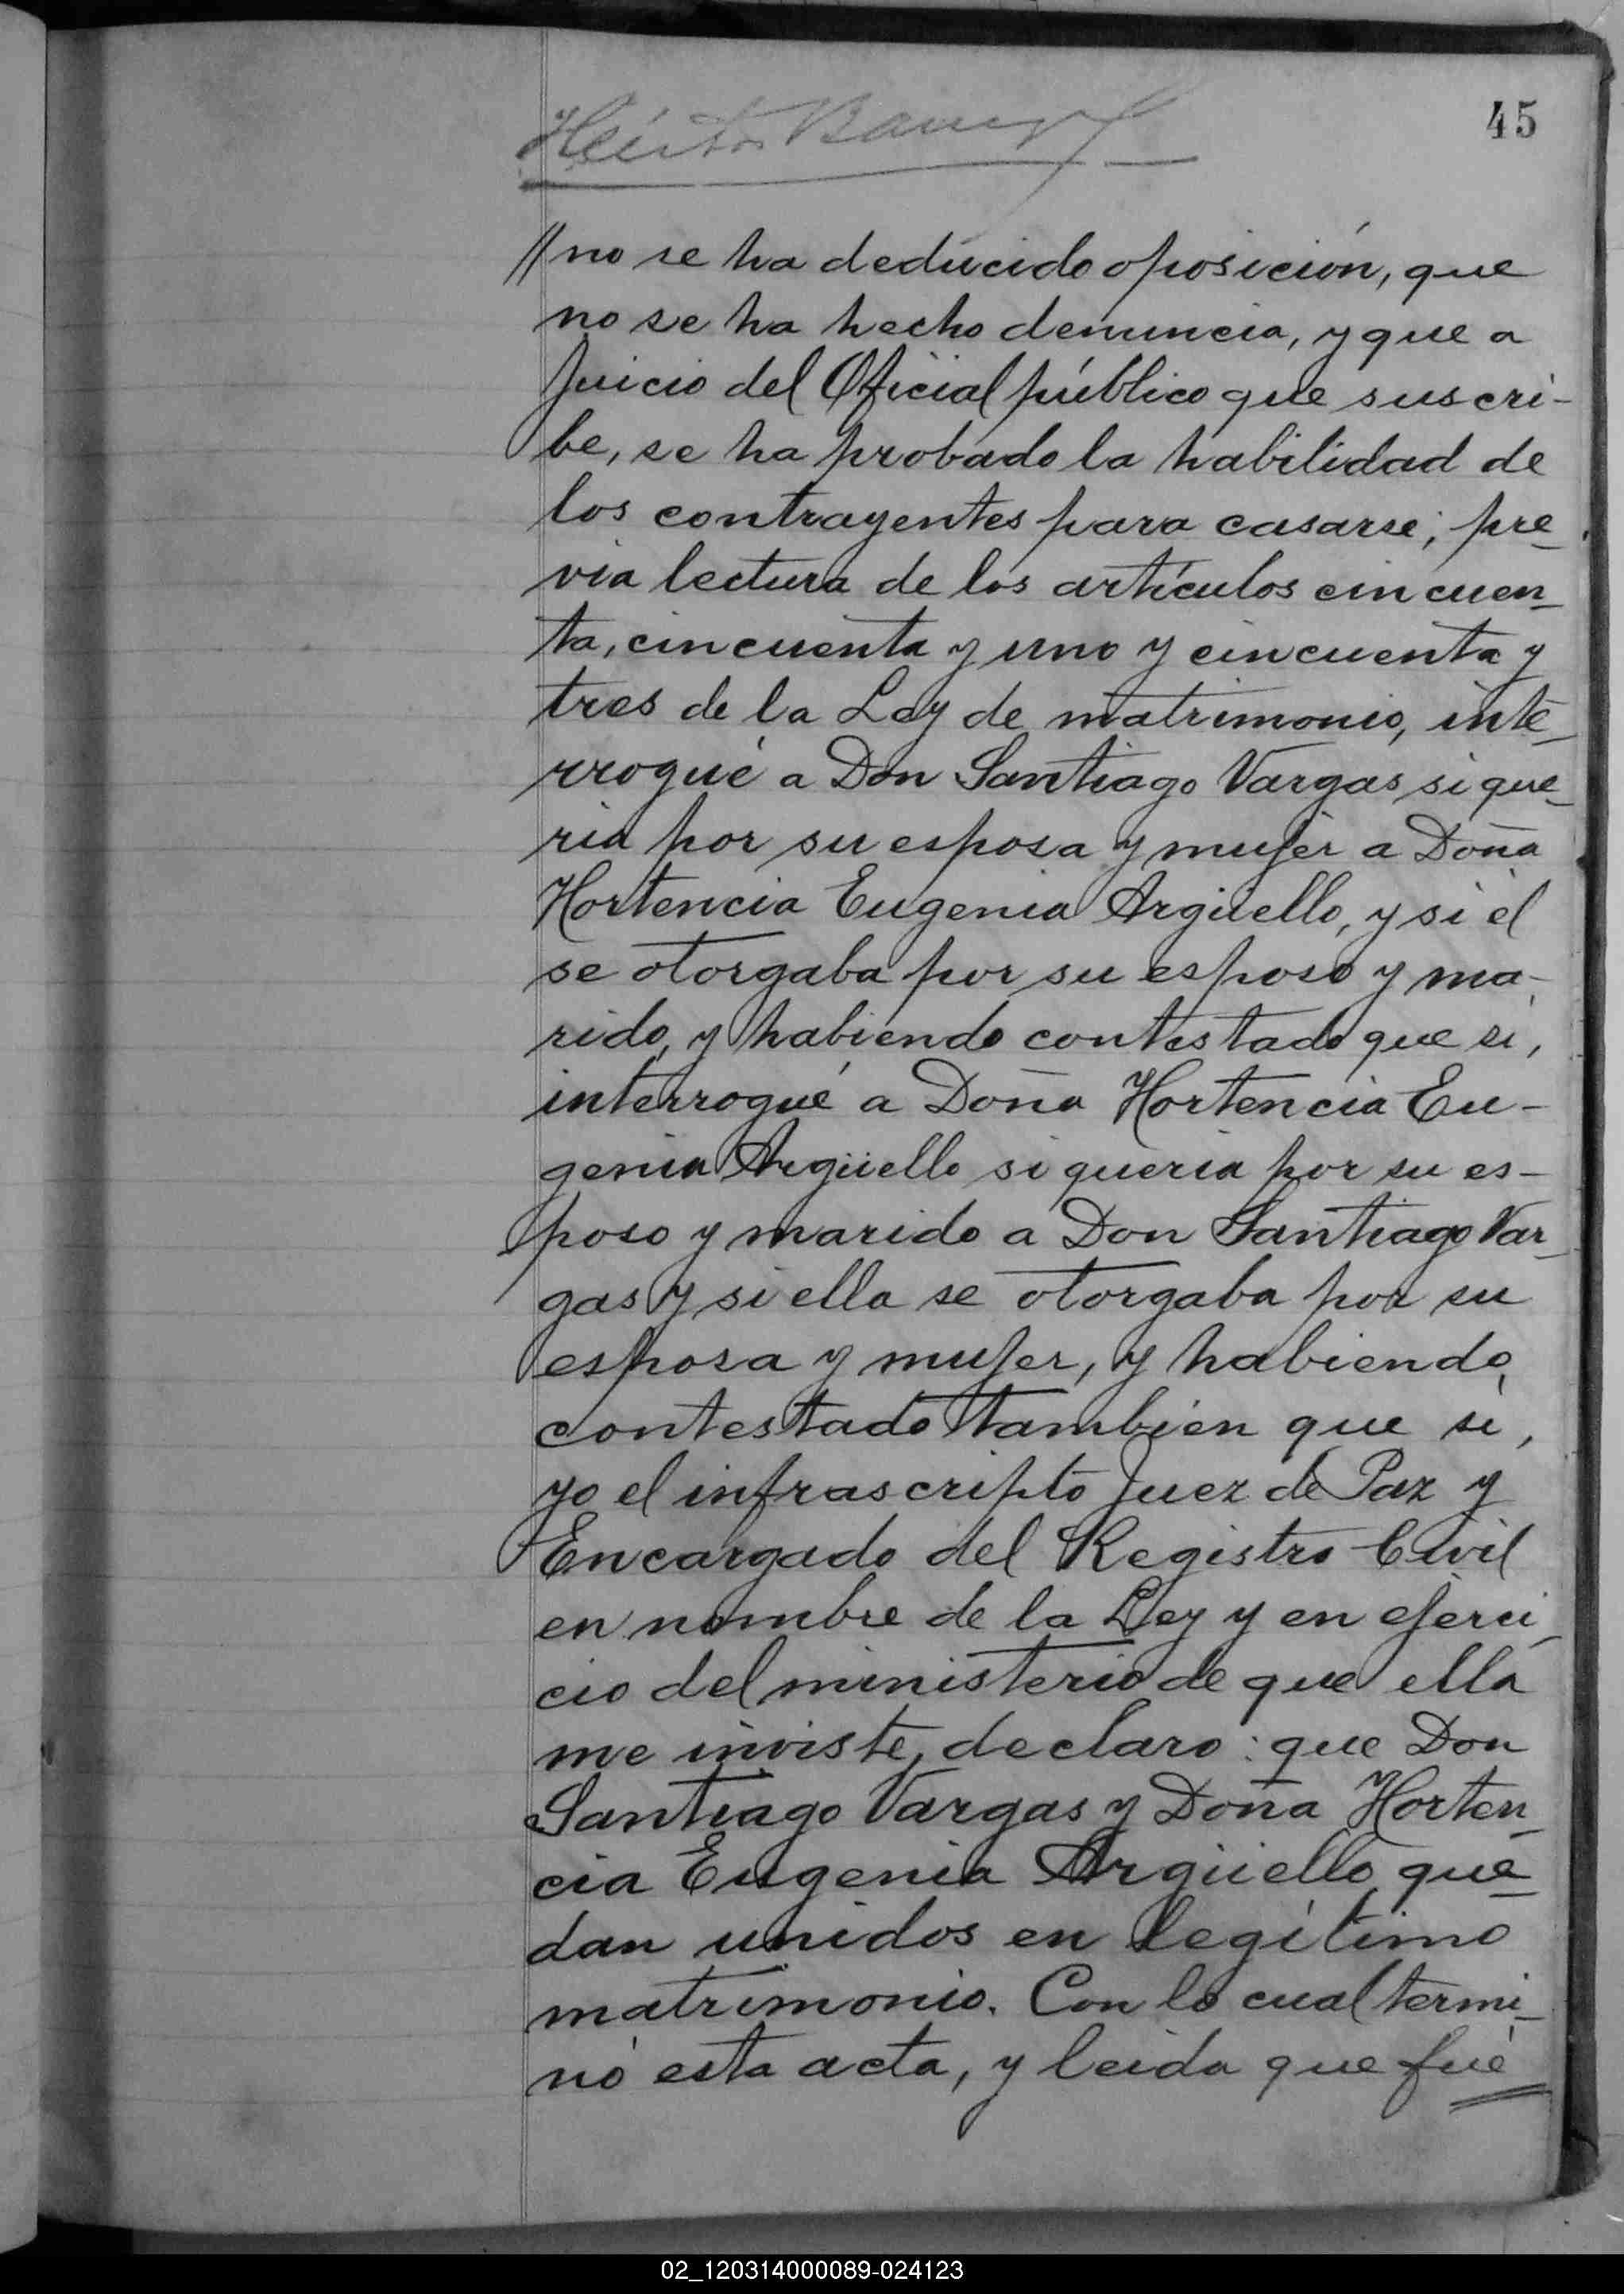 45
Héctor
//no se ha deducido oposición, que
no se ha hecho denuncia, y que a
juicio del Oficial público que suscri-
be, se ha probado la habilidad de
los contrayentes para casarse; pre-
via lectura de los artículos cincuen-
ta, cincuenta y uno y cincuenta y
tres de la Ley de matrimonio, inte-
rrogué a Don Santiago Vargas si que-
ria por su esposa y mujer a Doña
Hortencia Eugenia Argüello, y si él
se otorgaba por su esposo y ma-
rido, y habiendo contestado que sí,
interrogué a Doña Hortencia Eu-
genia Argüello si queria por su es-
poso y marido a Don Santiago Var-
gas y si ella se otorgaba por su
esposa y mujer, y habiendo
contestado también que sí,
yo el infrascripto Juez de Paz y
Encargado del Registro Civil
en nombre de la Ley y en ejerci-
cio del ministerio de que ella
me inviste, declaro: que Don
Santiago Vargas y Doña Horten-
cia Eugenia Argüello que-
dan unidos en legítimo
matrimonio. Con lo cual termi-
nó esta acta, y leida que fué
02_120314000089-024123